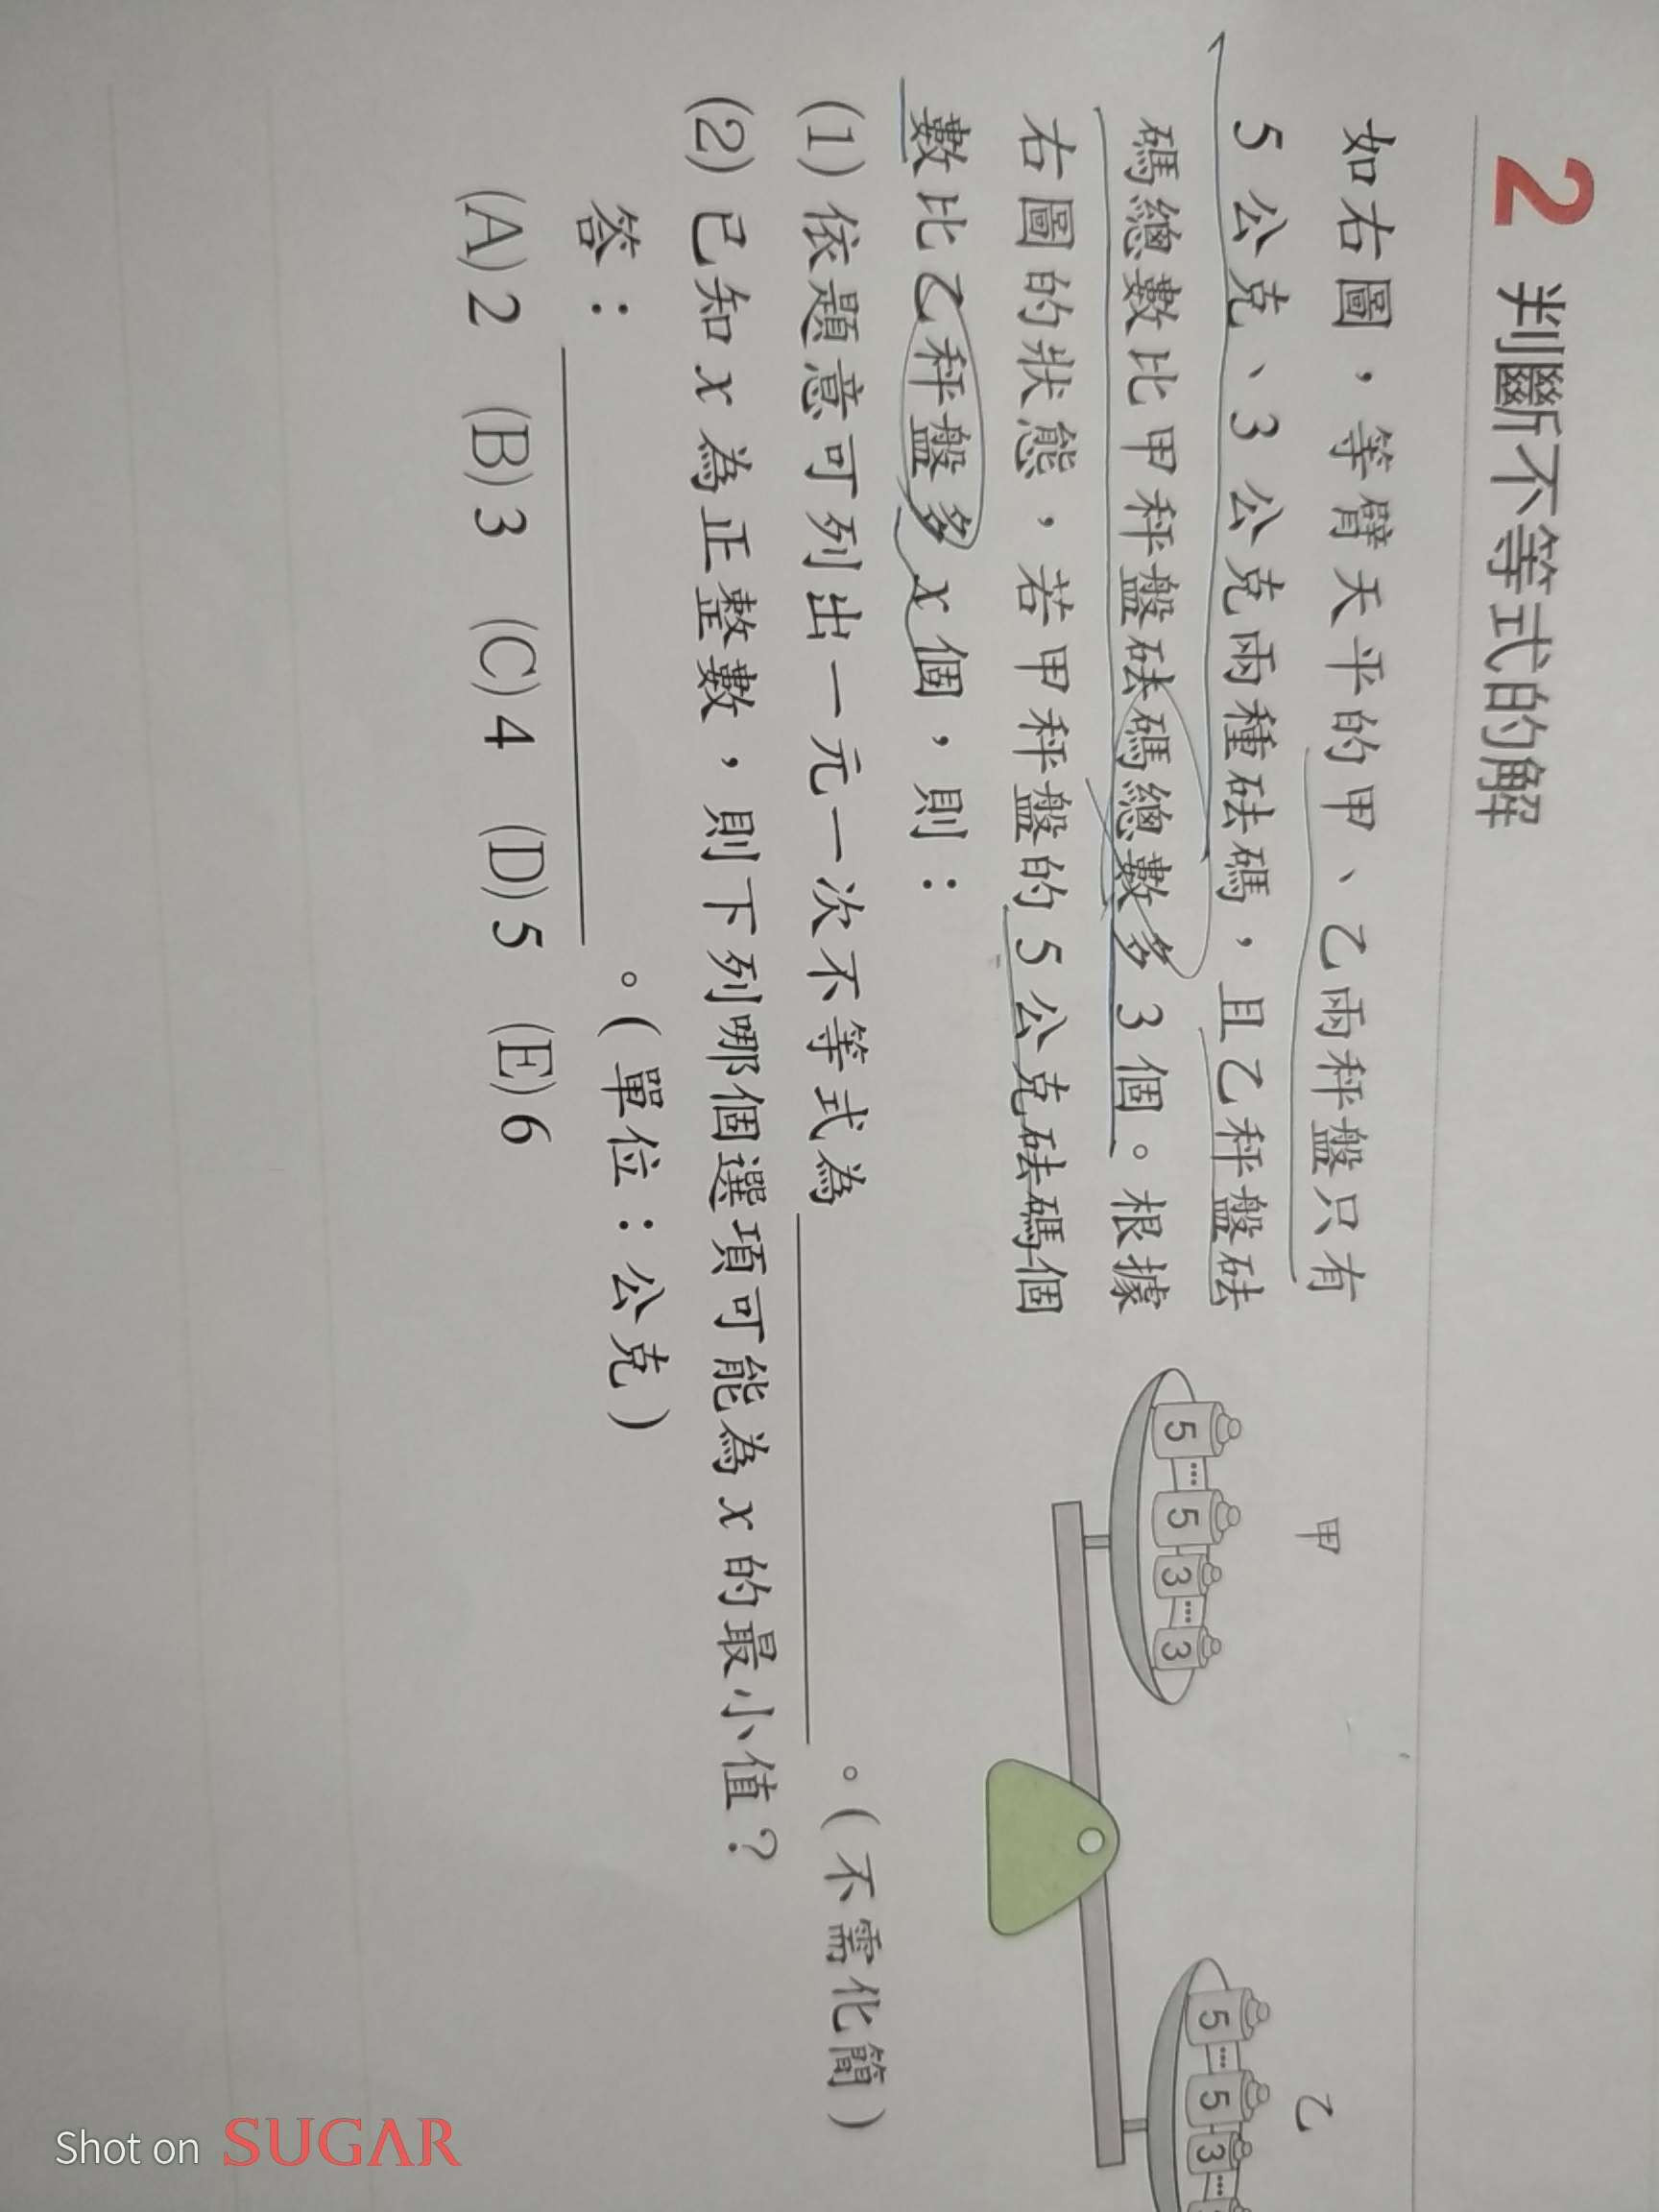 2 判斷不等式的解
如右圖，等臂天平的甲、乙兩秤盤只有
5公克、3公克兩種砝碼，且乙秤盤砝
碼總數比甲秤盤砝碼總數多3個。根據
右圖的狀態，若甲秤盤的5公克砝碼個
數比乙秤盤多x個，則：
甲
乙
5 … 5 3 … 3
5 … 5 3 …
(1) 依題意可列出一元一次不等式為 ＿＿＿＿＿＿。(不需化簡)
(2) 已知x為正整數，則下列哪個選項可能為x的最小值？
答：＿＿＿＿＿＿。(單位：公克)
(A) 2 (B) 3 (C) 4 (D) 5 (E) 6
Shot on SUGAR